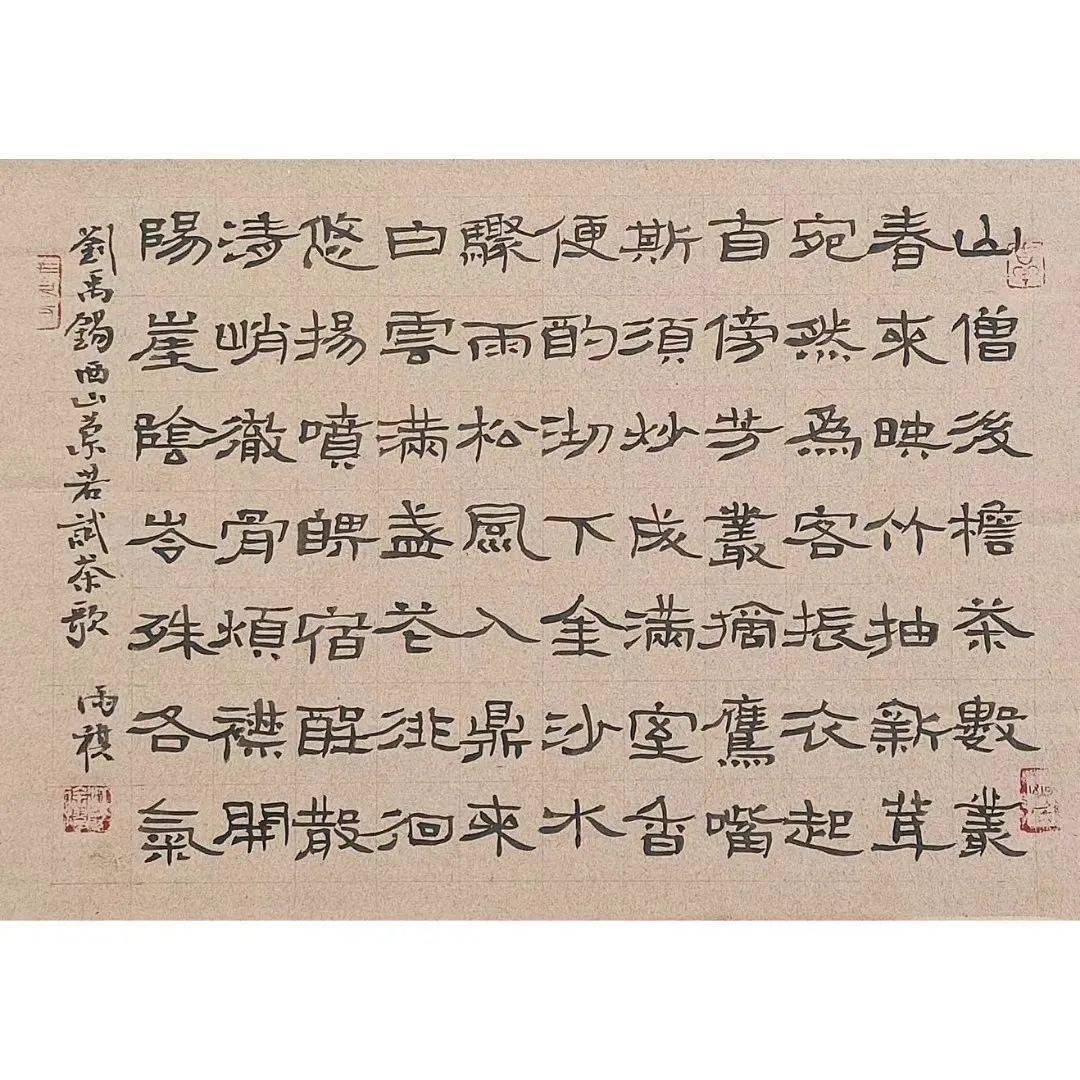 山僧後檐茶數叢
春來映竹抽新茸
宛然為客振衣起
直傍芳叢摘鷹嘴
斯須炒成滿室香
便酌沏下金沙水
驟雨松風入鼎來
白雲滿盏花徘徊
悠揚噴鼻宿酲散
濤峭徹骨煩襟開
陽崖陰岭殊各氣
劉禹錫西山蘭若試茶歌 雨祺